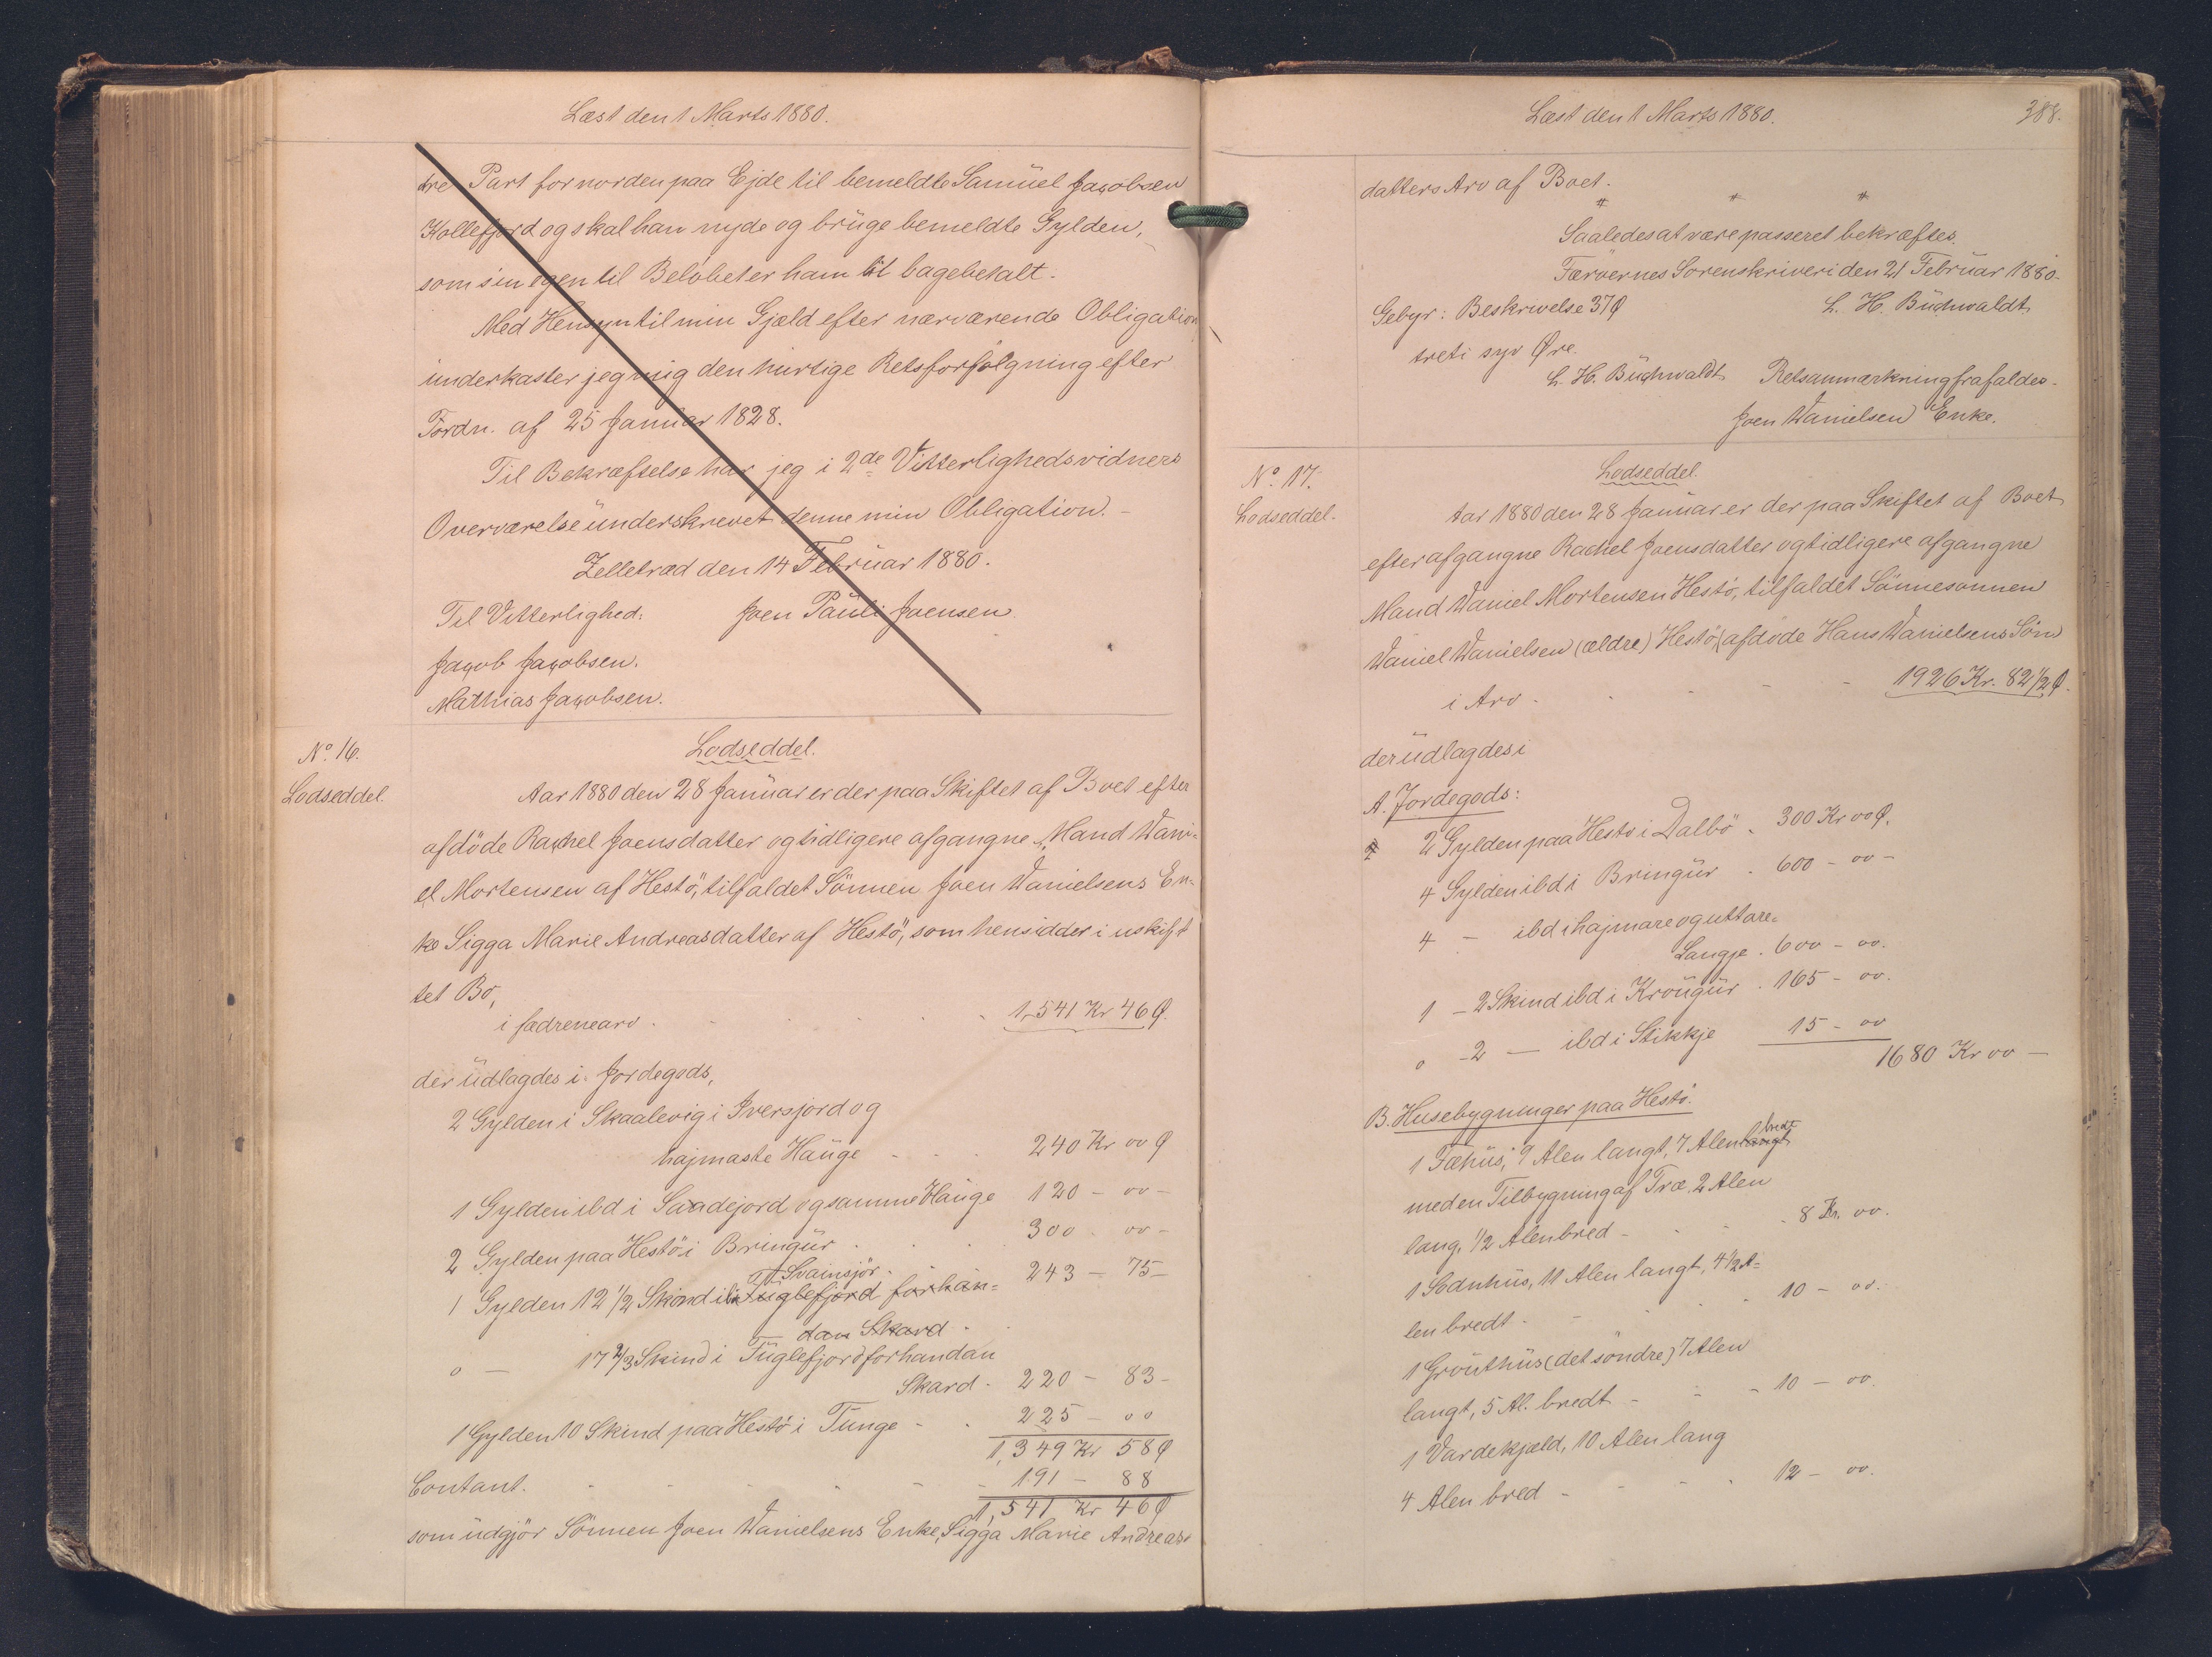 Læst den 1 Marts 1880.
dre Part for norden paa Ejde til bemeldte Samüel Jacobsen
Kollefjord og skal han nyde og brüge bemeldte Gylden,
som sin egen til Belöbet er ham til bagebetalt.
Med Hensyn til min Gjæld efter nærværende Obligation
ünderkaster jeg mig den hürtige Retsforfölgning efter
Fordn. af 25 Januar 1828.
Til Bekræftelse har jeg i 2de Vitterlighedsvidners
Overværelse ünderskrevet denne min Obligation. -
Zelletræd den 14 Februar 1880.
Til Vitterlighed: Joen Paüli Joensen
Jacob Jacobsen.
Mathias Jacobsen.
No. 16.
Lodseddel.
Lodseddel.
Aar 1880 den 28 Januar er der paa Skiftet af Boet efter
afdöde Rachel Joensdatter og tidligere afgangne Mand Dani-
el Mortensen af Hestö, tilfaldet Sönnen Joen Danielsens En-
ke Sigga Marie Andreasdatter af Hestö, som hensidder i uskift
tet Bo,
i fædrenearv . 1,541 Kr 46 Ø.
der üdlagdes i Jordegods,
2 Gylden i Skaalevig i Iversjord og
hajmaste Haüge - 240 Kr 00 Ø
1 Gylden ibd i Saadejord og samme Haüge 120 - 00 -
2 Gylden paa Hestö i Bringür . 300 - 00 -
1 Gylden 12 1/2 Skind ibd i Svainsjör . 243 - 75 -
Füglefjord forhan=
dan Skard -
0 - 17 2/3 Skind i Füglefjord forhandan
Skard - 220 - 83 -
1 Gylden 10 Skind paa Hestö i Tunge - 225 - 00
1,349 Kr 58 Ø
Contant. - 191 - 88
1,541 Kr 46 Ø
som üdgjör Sönnen Joen Danielsens Enke, Sigga Marie Andreas-
Læst den 1 Marts 1880. 388.
datters Arv af Boet.
Saaledes at være passeret bekræftes.
Færöernes Sorenskriveri den 21 Februar 1880.
Gebyr: Beskrivelse 37 Ø L. H. Büchwaldt
treti syv Øre.
L. H. Büchwaldt Retsanmærkning frafaldes.
Joen Danielsen Enke.
No. 17.
Lodseddel.
Lodseddel.
Aar 1880 den 28 Januar er der paa Skiftet af Boet
efter afgangne Rachel Joensdatter og tidligere afgangne
Mand Daniel Mortensen Hestö, tilfaldet Sönnesönnen
Daniel Danielsen (ældre) Hestö, (afdøde Hans Danielsens Sön)
i Arv - 1926 Kr. 82 1/2 Ø.
der üdlagdes i
A. Jordegods:
2 Gylden paa Hestö i Dalbö . 300 Kr 00 Ø.
4 Gylden ibd i Bringür . 600 - 00 -
4 - ibd i hajmare og uttare=
Langje . 600 - 00.
1 - 2 Skind ibd i Kroügür . 165 - 00.
0 - 2 - ibd i Stikkje 15 - 00
1680 Kr 00 -
B. Husebygninger paa Hestö.
1 Fæhüs, 9 Alen langt, 7 Alen langt bredt
med en Tilbygning af Træ 2 Alen
lang, 1/2 Alen bred - 8 Kr. 00.
1 Sodnhüs, 11 Alen langt, 4 1/2 A=
len bredt - 10 - 00.
1 Groüthüs (det søndre) 7 Alen
langt, 5 Al. bredt - 10 - 00.
1 Vardekjæld, 10 Alen lang
4 Alen bred - 12 - 00.